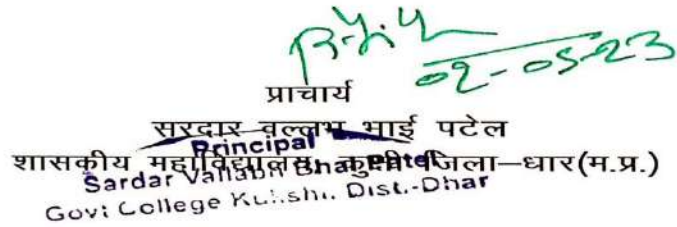 02-05-23
प्राचार्य
सरदार वल्लभ भाई पटेल
Principal
शासकीय महाविद्यालय, कुक्षी जिला–धार(म.प्र.)
Sardar Vallabh Bhai Patel
Govt College Kukshi. Dist.-Dhar